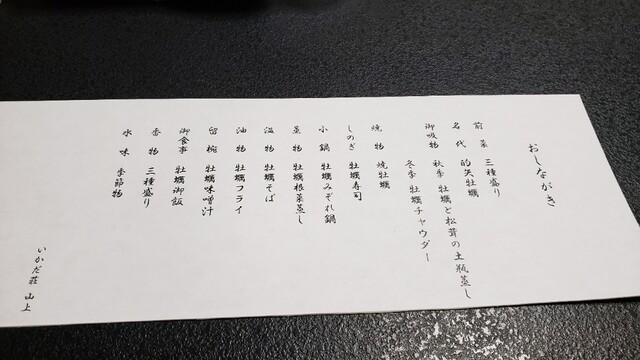 おしながき
前菜 三種盛り
名代 的矢牡蠣
御吸物 秋季 牡蠣と松茸の土瓶蒸し
冬季 牡蠣チャウダー
焼物 焼牡蠣
しのぎ 牡蠣寿司
小鍋 牡蠣みぞれ鍋
蒸物 牡蠣根菜蒸し
温物 牡蠣そば
油物 牡蠣フライ
留椀 牡蠣味噌汁
御食事 牡蠣御飯
香物 三種盛り
水味 季節物
いかだ荘 山上